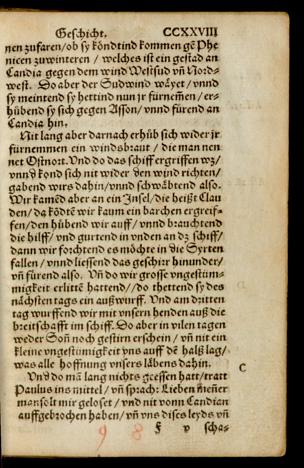 Geschicht. CCXXVIII
nen zufaren/ob sy köndtind kommen gē Phe
nicen zuwinteren / welches ist ein gestad an
Candia gegen dem wind Westsud vñ Nord-
west. Do aber der Sudwind wäyet/vnnd
sy meintend sy hettind nun jr fürnemen/er-
hübend sy sich gegen Asson/vnnd fürend an
Candia hin.
Nit lang aber darnach erhüb sich wider jr
fürnemmen ein windsbraut / die man nen
net Ostnort. Vnd do das schiff ergriffen wz/
vnnd kond sich nit wider den wind richten/
gabend wirs dahin/vnnd schwäbtend also.
Wir kamēd aber an ein Insel/die heißt Clau
den/da kōdtē wir kaum ein barchen ergreif-
fen/den hübend wir auff/vnnd brauchtend
die hilff/vnd gurtend in vnden an dz schiff/
dann wir forchtend es möchte in die Syrten
fallen/vnnd liessend das geschirr hinunder/
vñ fürend also. Vñ do wir grosse vngestüm-
migkeit erlittē hattend//do thettend sy des
nächsten tags ein außwurff. Vnd am dritten
tag wurffend wir mit vnsern henden auß die
breitschafft im schiff. Do aber in vilen tagen
weder Soñ noch gestirn erschein/vñ nit ein
kleine vngestümigkeit vns auff dē halß lag/
was alle hoffnung vnsers läbens dahin.
C
Vnd do mā lang nichts geessen hatt/tratt
Paulus ins mittel/ vñ sprach: Lieben mēner
man solt mir geloset/ vnd nit vonn Candian
auffgebrochen haben/vñ vns dises leyds vñ
98
scha-